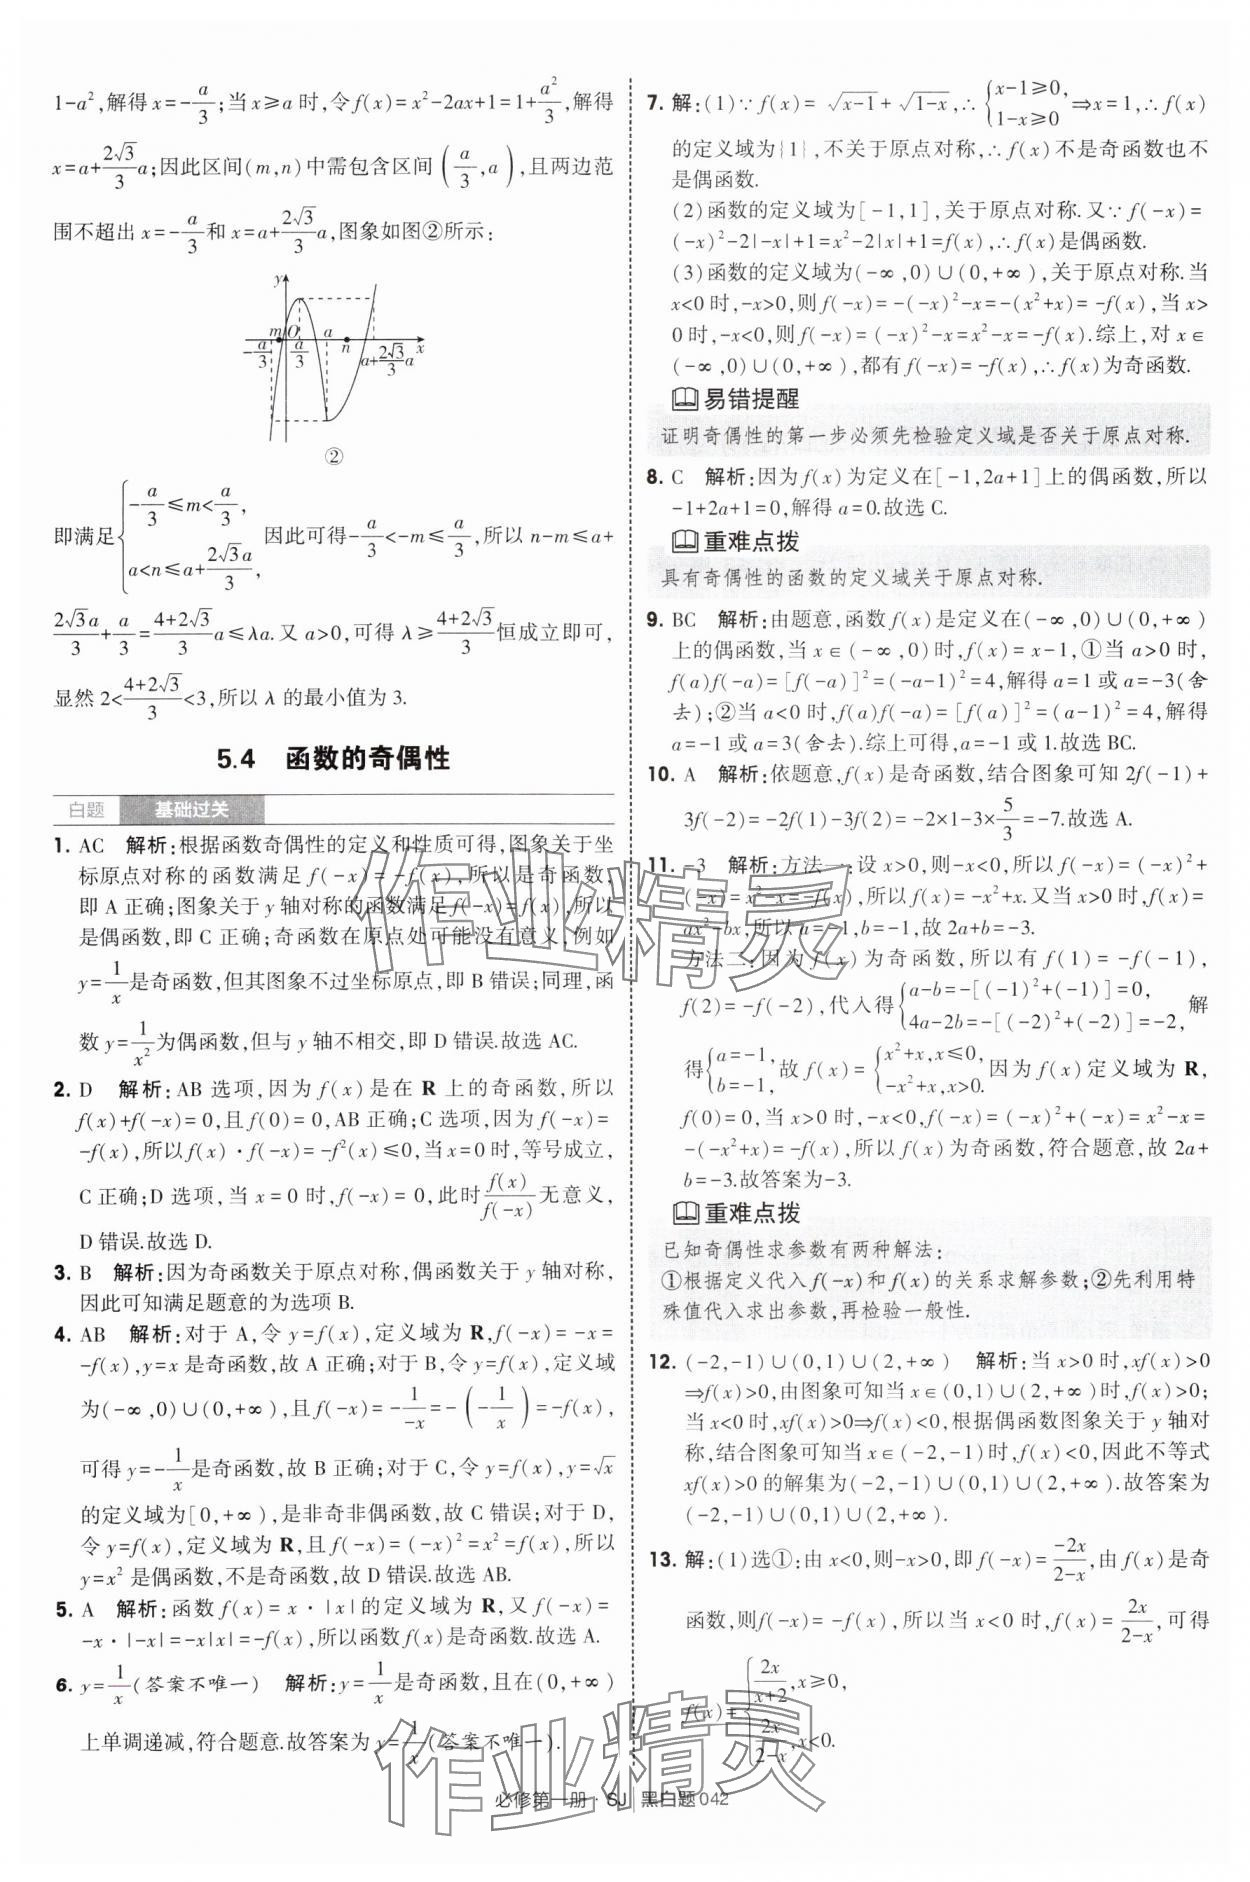 1-a²,解得 x=-a/3;当 x≥a 时,令 f(x)=x²-2ax+1=1+a²/3,解得
x=a+2√3/3 a;因此区间(m,n)中需包含区间(a/3,a),且两边范
围不超出 x=-a/3和 x=a+2√3/3 a,图象如图②所示:
y
m O a n x
-a/3 a/3 a+2√3/3 a
②
即满足{-a/3≤m<a/3, a<n≤a+2√3a/3, 因此可得-a/3<-m≤a/3,所以 n-m≤a+
2√3a/3+a/3=(4+2√3)/3 a≤λa.又 a>0,可得 λ≥(4+2√3)/3恒成立即可,
显然 2<(4+2√3)/3<3,所以 λ 的最小值为 3.
5.4 函数的奇偶性
白题 基础过关
1. AC 解析:根据函数奇偶性的定义和性质可得,图象关于坐
标原点对称的函数满足 f(-x)=-f(x),所以是奇函数,
即 A 正确;图象关于 y 轴对称的函数满足 f(-x)=f(x),所以
是偶函数,即 C 正确;奇函数在原点处可能没有意义,例如
y=1/x是奇函数,但其图象不过坐标原点,即 B 错误;同理,函
数 y=1/x²为偶函数,但与 y 轴不相交,即 D 错误.故选 AC.
2. D 解析:AB 选项,因为 f(x)是在 R 上的奇函数,所以
f(x)+f(-x)=0,且 f(0)=0,AB 正确;C 选项,因为 f(-x)=
-f(x),所以 f(x)·f(-x)=-f²(x)≤0,当 x=0 时,等号成立,
C 正确;D 选项,当 x=0 时,f(-x)=0,此时f(x)/f(-x)无意义,
D 错误.故选 D.
3. B 解析:因为奇函数关于原点对称,偶函数关于 y 轴对称,
因此可知满足题意的为选项 B.
4. AB 解析:对于 A,令 y=f(x),定义域为 R,f(-x)=-x=
-f(x),y=x 是奇函数,故 A 正确;对于 B,令 y=f(x),定义域
为(-∞,0)∪(0,+∞),且 f(-x)=-1/-x=-(-1/x)=-f(x),
可得 y=-1/x是奇函数,故 B 正确;对于 C,令 y=f(x),y=√x
的定义域为[0,+∞),是非奇非偶函数,故 C 错误;对于 D,
令 y=f(x),定义域为 R,且 f(-x)=(-x)²=x²=f(x),所以
y=x² 是偶函数,不是奇函数,故 D 错误.故选 AB.
5. A 解析:函数 f(x)=x·|x|的定义域为 R,又 f(-x)=
-x·|-x|=-x|x|=-f(x),所以函数 f(x)是奇函数.故选 A.
6. y=1/x(答案不唯一) 解析:y=1/x是奇函数,且在(0,+∞)
上单调递减,符合题意.故答案为 y=1/x(答案不唯一).
7. 解:(1)∵f(x)=√x-1+√1-x,∴{x-1≥0, 1-x≥0⇒x=1,∴f(x)
的定义域为{1},不关于原点对称,∴f(x)不是奇函数也不
是偶函数.
(2)函数的定义域为[-1,1],关于原点对称.又∵f(-x)=
(-x)²-2|-x|+1=x²-2|x|+1=f(x),∴f(x)是偶函数.
(3)函数的定义域为(-∞,0)∪(0,+∞),关于原点对称.当
x<0 时,-x>0,则 f(-x)=-(-x)²-x=-(x²+x)=-f(x),当 x>
0 时,-x<0,则 f(-x)=(-x)²-x=x²-x=-f(x).综上,对 x∈
(-∞,0)∪(0,+∞),都有 f(-x)=-f(x),∴f(x)为奇函数.
易错提醒
证明奇偶性的第一步必须先检验定义域是否关于原点对称.
8. C 解析:因为 f(x)为定义在[-1,2a+1]上的偶函数,所以
-1+2a+1=0,解得 a=0.故选 C.
重难点拨
具有奇偶性的函数的定义域关于原点对称.
9. BC 解析:由题意,函数 f(x)是定义在(-∞,0)∪(0,+∞)
上的偶函数,当 x∈(-∞,0)时,f(x)=x-1,①当 a>0 时,
f(a)f(-a)=[f(-a)]²=(-a-1)²=4,解得 a=1 或 a=-3(舍
去);②当 a<0 时,f(a)f(-a)=[f(a)]²=(a-1)²=4,解得
a=-1 或 a=3(舍去).综上可得,a=-1 或 1.故选 BC.
10. A 解析:依题意,f(x)是奇函数,结合图象可知 2f(-1)+
3f(-2)=-2f(1)-3f(2)=-2×1-3×5/3=-7.故选 A.
11. -3 解析:方法一:设 x>0,则-x<0,所以 f(-x)=(-x)²+
(-x)=x²-x=-f(x),所以 f(x)=-x²+x.又当 x>0 时,f(x)=
ax²-bx,所以 a=-1,b=-1,故 2a+b=-3.
方法二:因为 f(x)为奇函数,所以有 f(1)=-f(-1),
f(2)=-f(-2),代入得{a-b=-[(-1)²+(-1)]=0, 4a-2b=-[(-2)²+(-2)]=-2,解
得{a=-1, b=-1,故 f(x)={x²+x,x≤0, -x²+x,x>0.因为 f(x)定义域为 R,
f(0)=0,当 x>0 时,-x<0,f(-x)=(-x)²+(-x)=x²-x=
-(-x²+x)=-f(x),所以 f(x)为奇函数,符合题意,故 2a+
b=-3.故答案为-3.
重难点拨
已知奇偶性求参数有两种解法:
①根据定义代入 f(-x)和 f(x)的关系求解参数;②先利用特
殊值代入求出参数,再检验一般性.
12. (-2,-1)∪(0,1)∪(2,+∞) 解析:当 x>0 时,xf(x)>0
⇒f(x)>0,由图象可知当 x∈(0,1)∪(2,+∞)时,f(x)>0;
当 x<0 时,xf(x)>0⇒f(x)<0,根据偶函数图象关于 y 轴对
称,结合图象可知当 x∈(-2,-1)时,f(x)<0,因此不等式
xf(x)>0 的解集为(-2,-1)∪(0,1)∪(2,+∞).故答案为
(-2,-1)∪(0,1)∪(2,+∞).
13. 解:(1)选①:由 x<0,则-x>0,即 f(-x)=-2x/2-x,由 f(x)是奇
函数,则 f(-x)=-f(x),所以当 x<0 时,f(x)=2x/2-x,可得
f(x)={2x/x+2,x≥0, 2x/2-x,x<0.
作业精灵
作业精灵
必修第一册·SJ 黑白题 042